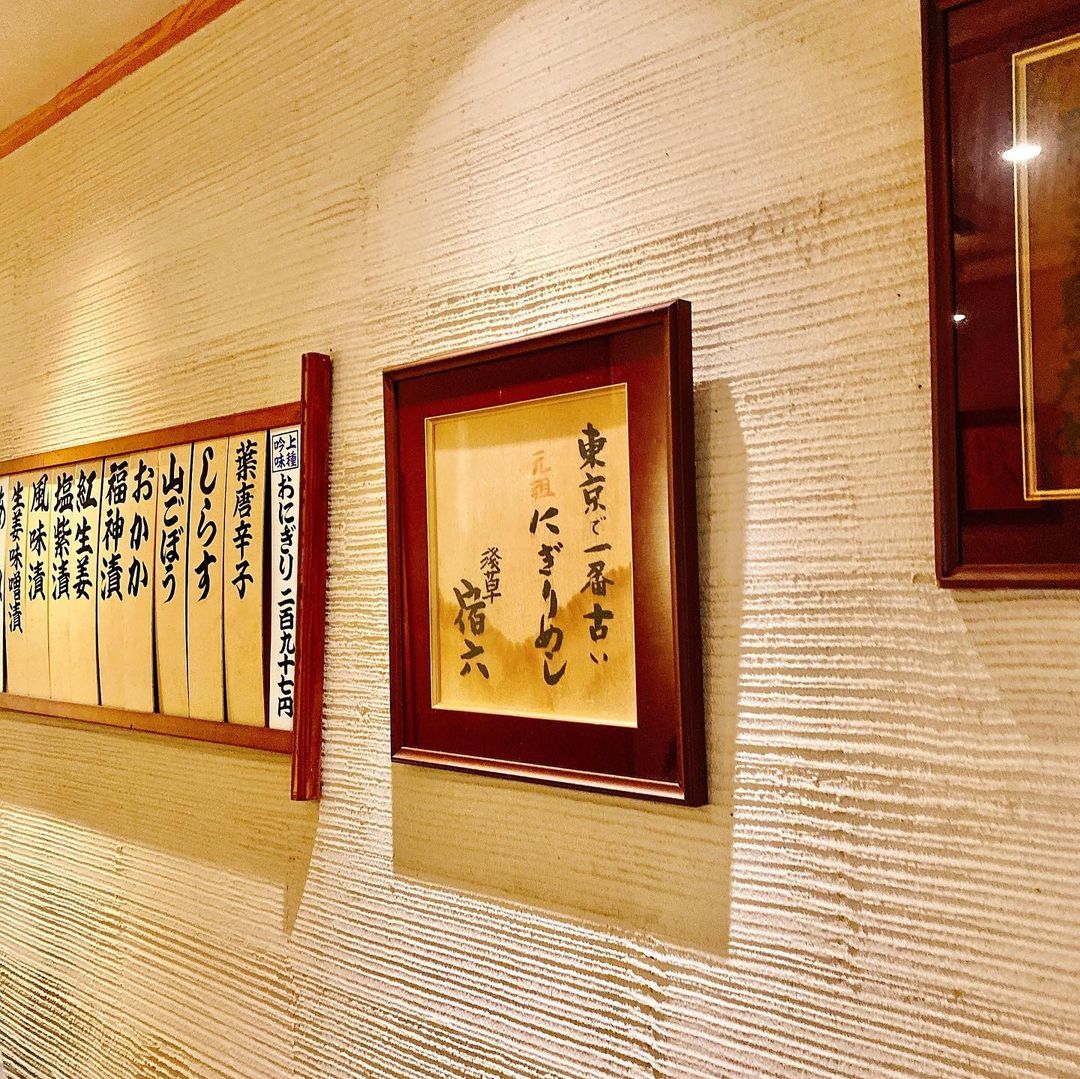 東京で一番古い
元祖
にぎりめし
浅草
宿六
上種
吟味
おにぎり 二百九十七円
葉唐辛子
しらす
山ごぼう
おかか
福神漬
紅生姜
塩紫漬
風味漬
生姜味噌漬